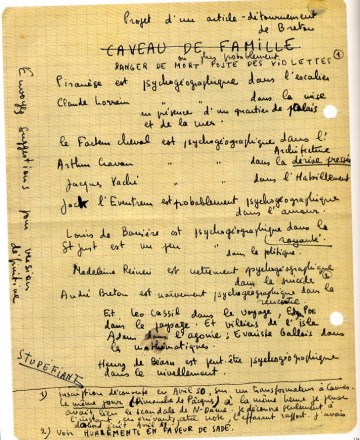 Projet d'un article-détournement
de Breton
CAVEAU DE FAMILLE
ou plus probablement
DANGER DE MORT POSTE DES VIOLETTES (1)
Piranèse est psychogéographique dans l'escalier
Claude Lorrain " " dans la mise
en présence d'un quartier de palais
et de la mer.
le Facteur cheval est psychogéographique dans l'
Architecture
Arthur Cravan " " dans la dérive pressée
Jacques Vaché " " dans l'Habillement
Jack l'Eventreur est probablement psychogéographique
dans l'amour.
Louis de Bavière est psychogéographique dans la
royauté.
St Just est un peu "
dans la politique.
Madeleine Reineri est nettement psychogéographique
dans le suicide (2)
André Breton est naïvement psychogéographique dans la
rencontre
Et dans le voyage, Edg Poe
dans le paysage ; Et Villiers de l'Isle
Adam dans l'agonie ; Evariste Gallois dans
les mathématiques.
Henry de Béarn est peut-être psychogéographique
dans le nivellement.
Envoyez suggestions pour version
définitive
STUPEFIANT
1) inscription découverte en Avril 50, sur un transformateur à Cannes
le même jour (Dimanche de Pâques) à la même heure
avait lieu le scandale de N-Dame
2) Voir HURLEMENTS EN FAVEUR DE SADE.